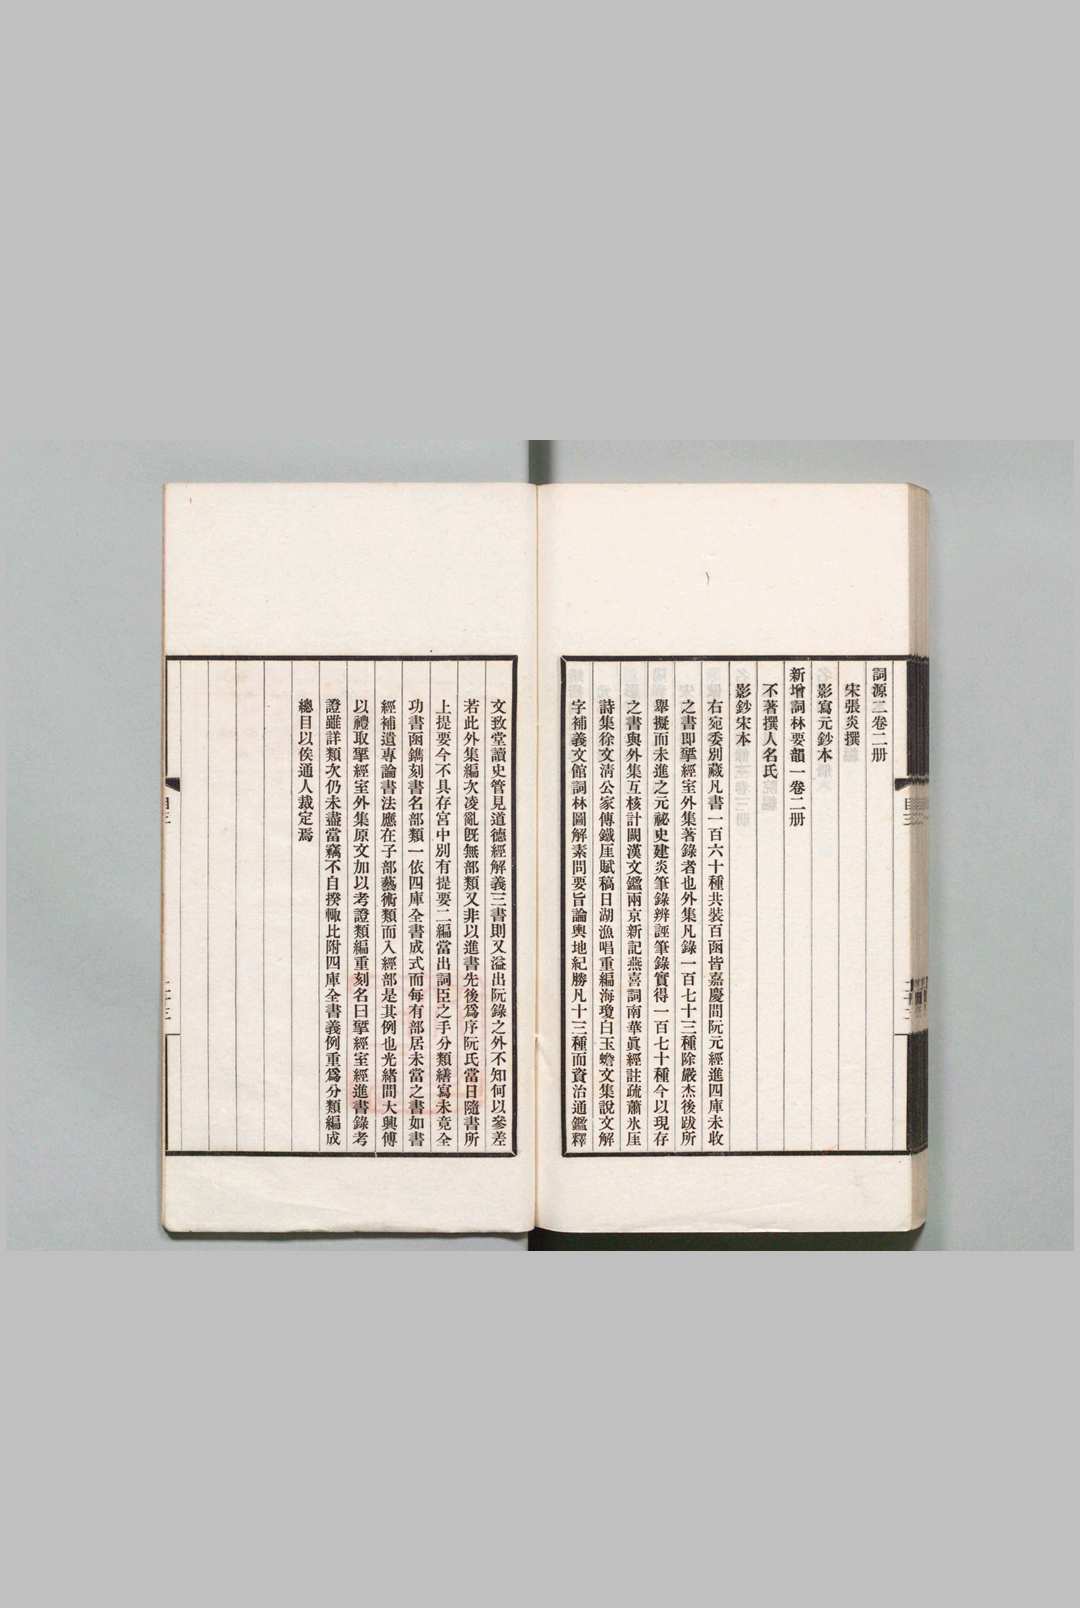 詞源二卷二册
宋張炎撰
影寫元鈔本
新增詞林要韻一卷二册
不著撰人名氏
影鈔宋本
右宛委別藏凡書一百六十種共裝百函皆嘉慶間阮元經進四庫未收
之書即揅經室外集著錄者也外集凡錄一百七十三種除嚴杰後跋所
舉擬而未進之元祕史建炎筆錄辨誣筆錄實得一百七十種今以現存
之書與外集互核計闕漢文鑑兩京新記燕喜詞南華眞經註疏蕭氷厓
詩集徐文清公家傳鐵厓賦稿日湖漁唱重編海瓊白玉蟾文集說文解
字補義文館詞林圖解素問要旨論輿地紀勝凡十三種而資治通鑑釋
文致堂讀史管見道德經解義三書則又溢出阮錄之外不知何以參差
若此外集編次凌亂旣無部類又非以進書先後爲序阮氏當日隨書所
上提要今不具存宮中別有提要二編當出詞臣之手分類繕寫未竟全
功書函鐫刻書名部類一依四庫全書成式而每有部居未當之書如書
經補遺專論書法應在子部藝術類而入經部是其例也光緖間大興傅
以禮取揅經室外集原文加以考證類編重刻名曰揅經室經進書錄考
證雖詳類次仍未盡當竊不自揆輙比附四庫全書義例重爲分類編成
總目以俟通人裁定焉
目三
二十三